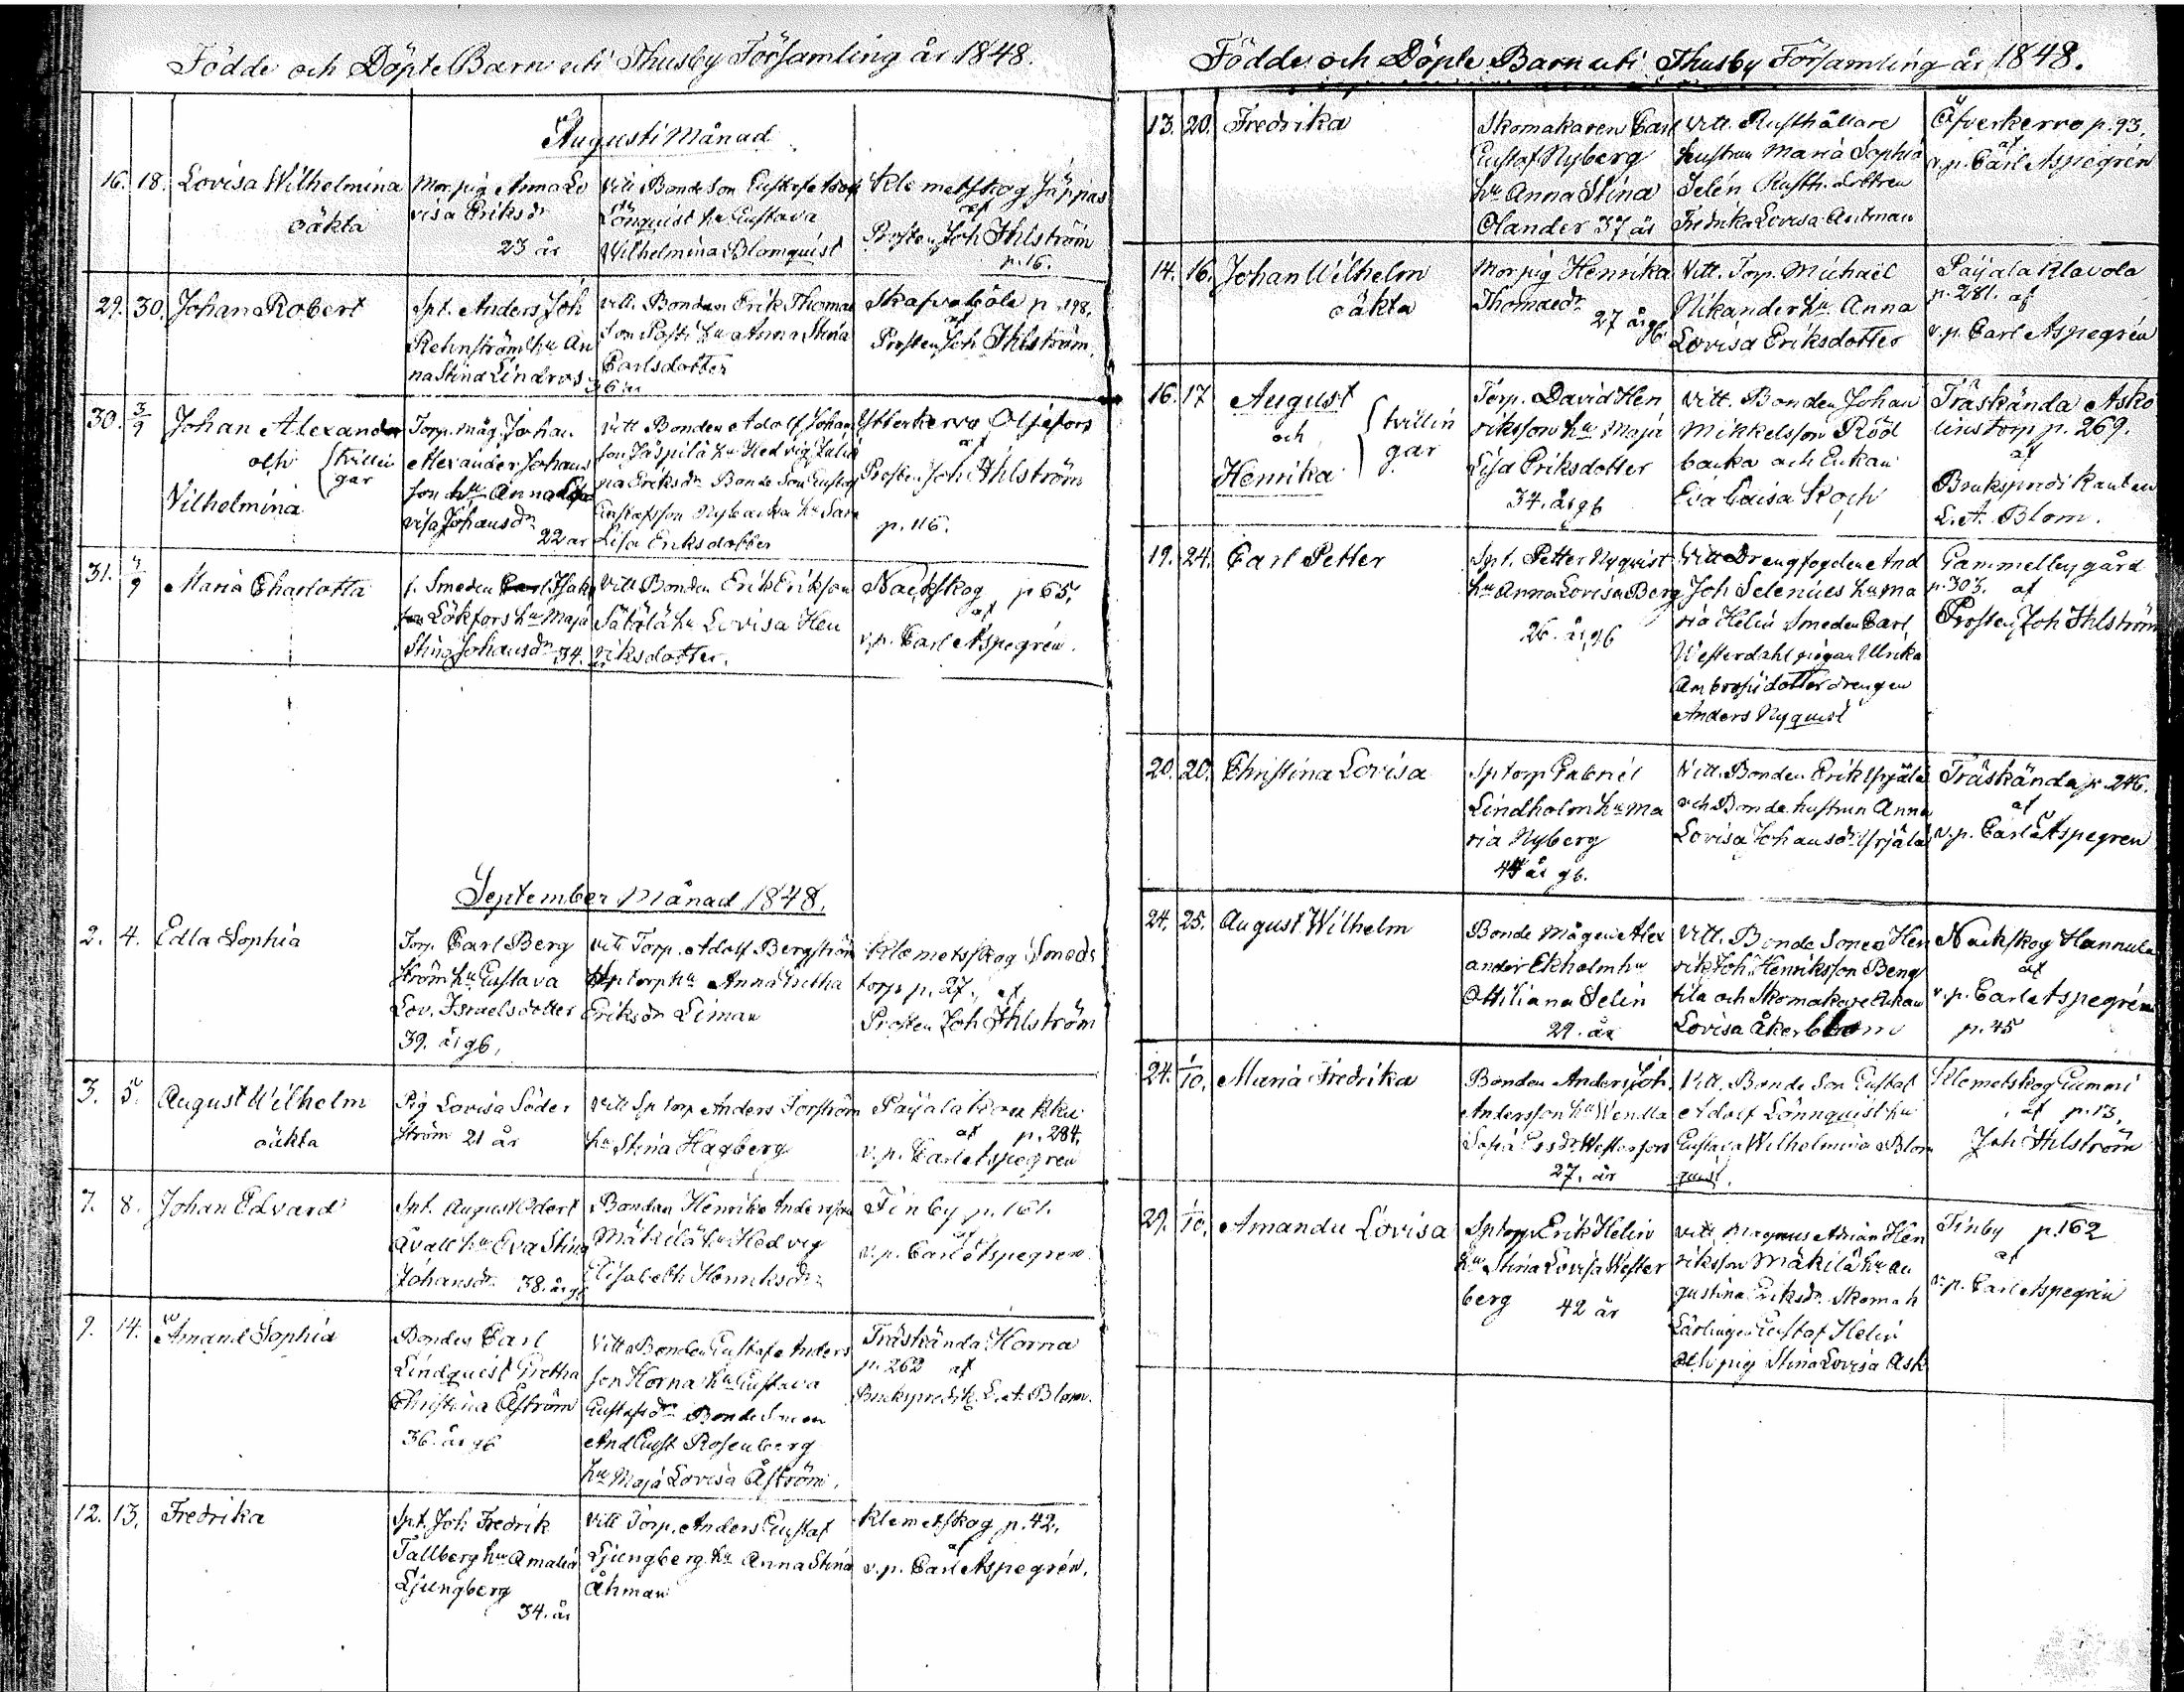 Födde och Döpte Barn uti Thusby Församling år 1848.
Augusti Månad
16. 18. Lovisa Wilhelmina
oäkta
Mor pig Anna Lo
visa Eriksdr
23 år
Vitt Bonde Son Gustaf Adolf
Lönquist hu Gustava
Wilhelmina Blomquist
Klemetskog Jäppas
af
Prosten Joh Ihlström
p. 16.
29. 30. Johan Robert
Spt. Anders Joh
Rehnström hu An
na Stina Lindros
36 år
vitt. Bonden Erik Thomas
Son Posti hu Anna Stina
Carlsdotter
Skafvaböle p. 198.
af
Prosten Joh Ihlström.
30. 3/9 Johan Alexander
och
Vilhelmina
tvillin
gar
Torp. måg Johan
Alexander Johans
son hu Anna Lo
visa Johansdr
22 år
vitt Bonden Adolf Johan
son Jäspilä hu Hedvig Julia
na Eriksdr Bonde Son Gustaf
Gustafsson Nybacka hu Sara
Lisa Eriksdotter
Ytterkervo Oljefors
af
Prosten Joh Ihlström
p. 116.
31. 4/9 Maria Charlotta
f. Smeden Carl Isaks
son Lökfors hu Maja
Stina Johansdr 34. år
Vitt Bonden Erik Eriksson
Sätälä hu Lovisa Hen
riksdotter.
Nackskog p 65.
af
v.p. Carl Aspegrén.
September Månad 1848.
2. 4. Edla Sophia
Torp. Carl Berg
ström hu Gustava
Lov. Israelsdotter
39. år gb,
vitt Torp. Adolf Bergström
Sptorp hu Anna Gretha
Eriksdr Liman
Klemetsskog Smeds
torp p. 27. af
Prosten Joh Ihlström
3. 5. August Wilhelm
oäkta
Pig Lovisa Söder
ström 21 år
Vitt Sp torp Anders Forsström
hu Stina Hagberg
Paijala
af p. 284.
v.p. Carl Aspegren
7. 8. Johan Edvard
Spt. August Odert
Avall hu Eva Stina
Johansdr 38. år gb
Bonden Henrik Andersson
Mäkilä hu Hedvig
Elisabeth Henriksdr
Finby p. 161.
af
v.p. Carl Aspegren
9. 14. Amand Sophia
Bonden Carl
Lindquist Gretha
Christina Åström
36. år gb
Vitt Bonden Gustaf Anders
son Horna hu Gustava
Gustafsdr Bonde Sonen
And Gust Rosenberg
hu Maja Lovisa Åström.
Träskända Horna
p. 262 af
Brukspredik. L. A. Blom.
12. 13. Fredrika
Spt. Joh Fredrik
Tallberg hu Amalia
Ljungberg
34. år
Vitt Torp. Anders Gustaf
Ljungberg hu Anna Stina
Åhman
Klemetskog p. 42.
af
v.p. Carl Aspegrén.
Födde och Döpte Barn uti Thusby Församling år 1848.
13. 20. Fredrika
Skomakaren Carl
Gustaf Nyberg
hu Anna Stina
Olander 37 år
Vitt. Rusthållare
hustrun Maria Sophia
Selén Rusth. dottren
Fredrika Lovisa Autman
Öfverkervo p. 93.
af
v.p. Carl Aspegrén
14. 16. Johan Wilhelm
oäkta
Mor pig Henrika
Thomasdr
27 år gb
Vitt. Torp. Michaël
Nikander hu Anna
Lovisa Eriksdotter
Paijala Klavola
p. 281. af
v.p. Carl Aspegrén
16. 17 August
och
Henrika
tvillin
gar
Torp. David Hen
riksson hu Maja
Lisa Eriksdotter
34. år gb
Vitt. Bonden Johan
Mikkelsson Röd
backa och Enkan
Eva Caisa Koch
Träskända Asko
lins torp p. 269.
af
Brukspredikanten
L. A. Blom.
19. 24. Carl Petter
Spt. Petter Nyquist
hu Anna Lovisa Berg
26. år gb
Vitt Drengfogden And
Joh Selenius hu Ma
ria Helin Smeden Carl
Westerdahl pigan Ulrika
Ambrosidotter drengen
Anders Nyquist
Gammelbygård
p. 303. af
Prosten Joh Ihlström
20. 20. Christina Lovisa
Sptorp Gabriel
Lindholm hu Ma
ria Nyberg
44 år gb.
Vitt. Bonden Erik Yrjälä
och Bonde hustrun Anna
Lovisa Johansdr Yrjälä
Träskända p. 246.
af
v.p. Carl Aspegren
24. 25. August Wilhelm
Bonde Mågen Alex
ander Ekholm hu
Ottiliana Selin
29. år
Vitt. Bonde Sonen Hen
rik Joh Henriksson Beng
tila och Skomakare Enkan
Lovisa Åkerblom
Nackskog Hannula
af
v.p. Carl Aspegrén
p. 45
24. 1/10. Maria Fredrika
Bonden Anders Joh.
Andersson hu Wendla
Sofia Ersdr Westerfors
27. år
Vitt. Bonde Son Gustaf
Adolf Lönnquist hu
Gustava Wilhelmina Blom
quist.
Klemetskog Gammi
af p. 13,
Joh Ihlström
29. 1/10. Amanda Lovisa
Sptorp Erik Helin
hu Stina Lovisa Wester
berg 42 år
Vitt Magnus Adrian Hen
riksson Mäkilä hu Au
gustina Eriksdr Skomak
Lärlingen Gustaf Helin
och pig Stina Lovisa Ask
Finby p. 162
af
v.p. Carl Aspegrén